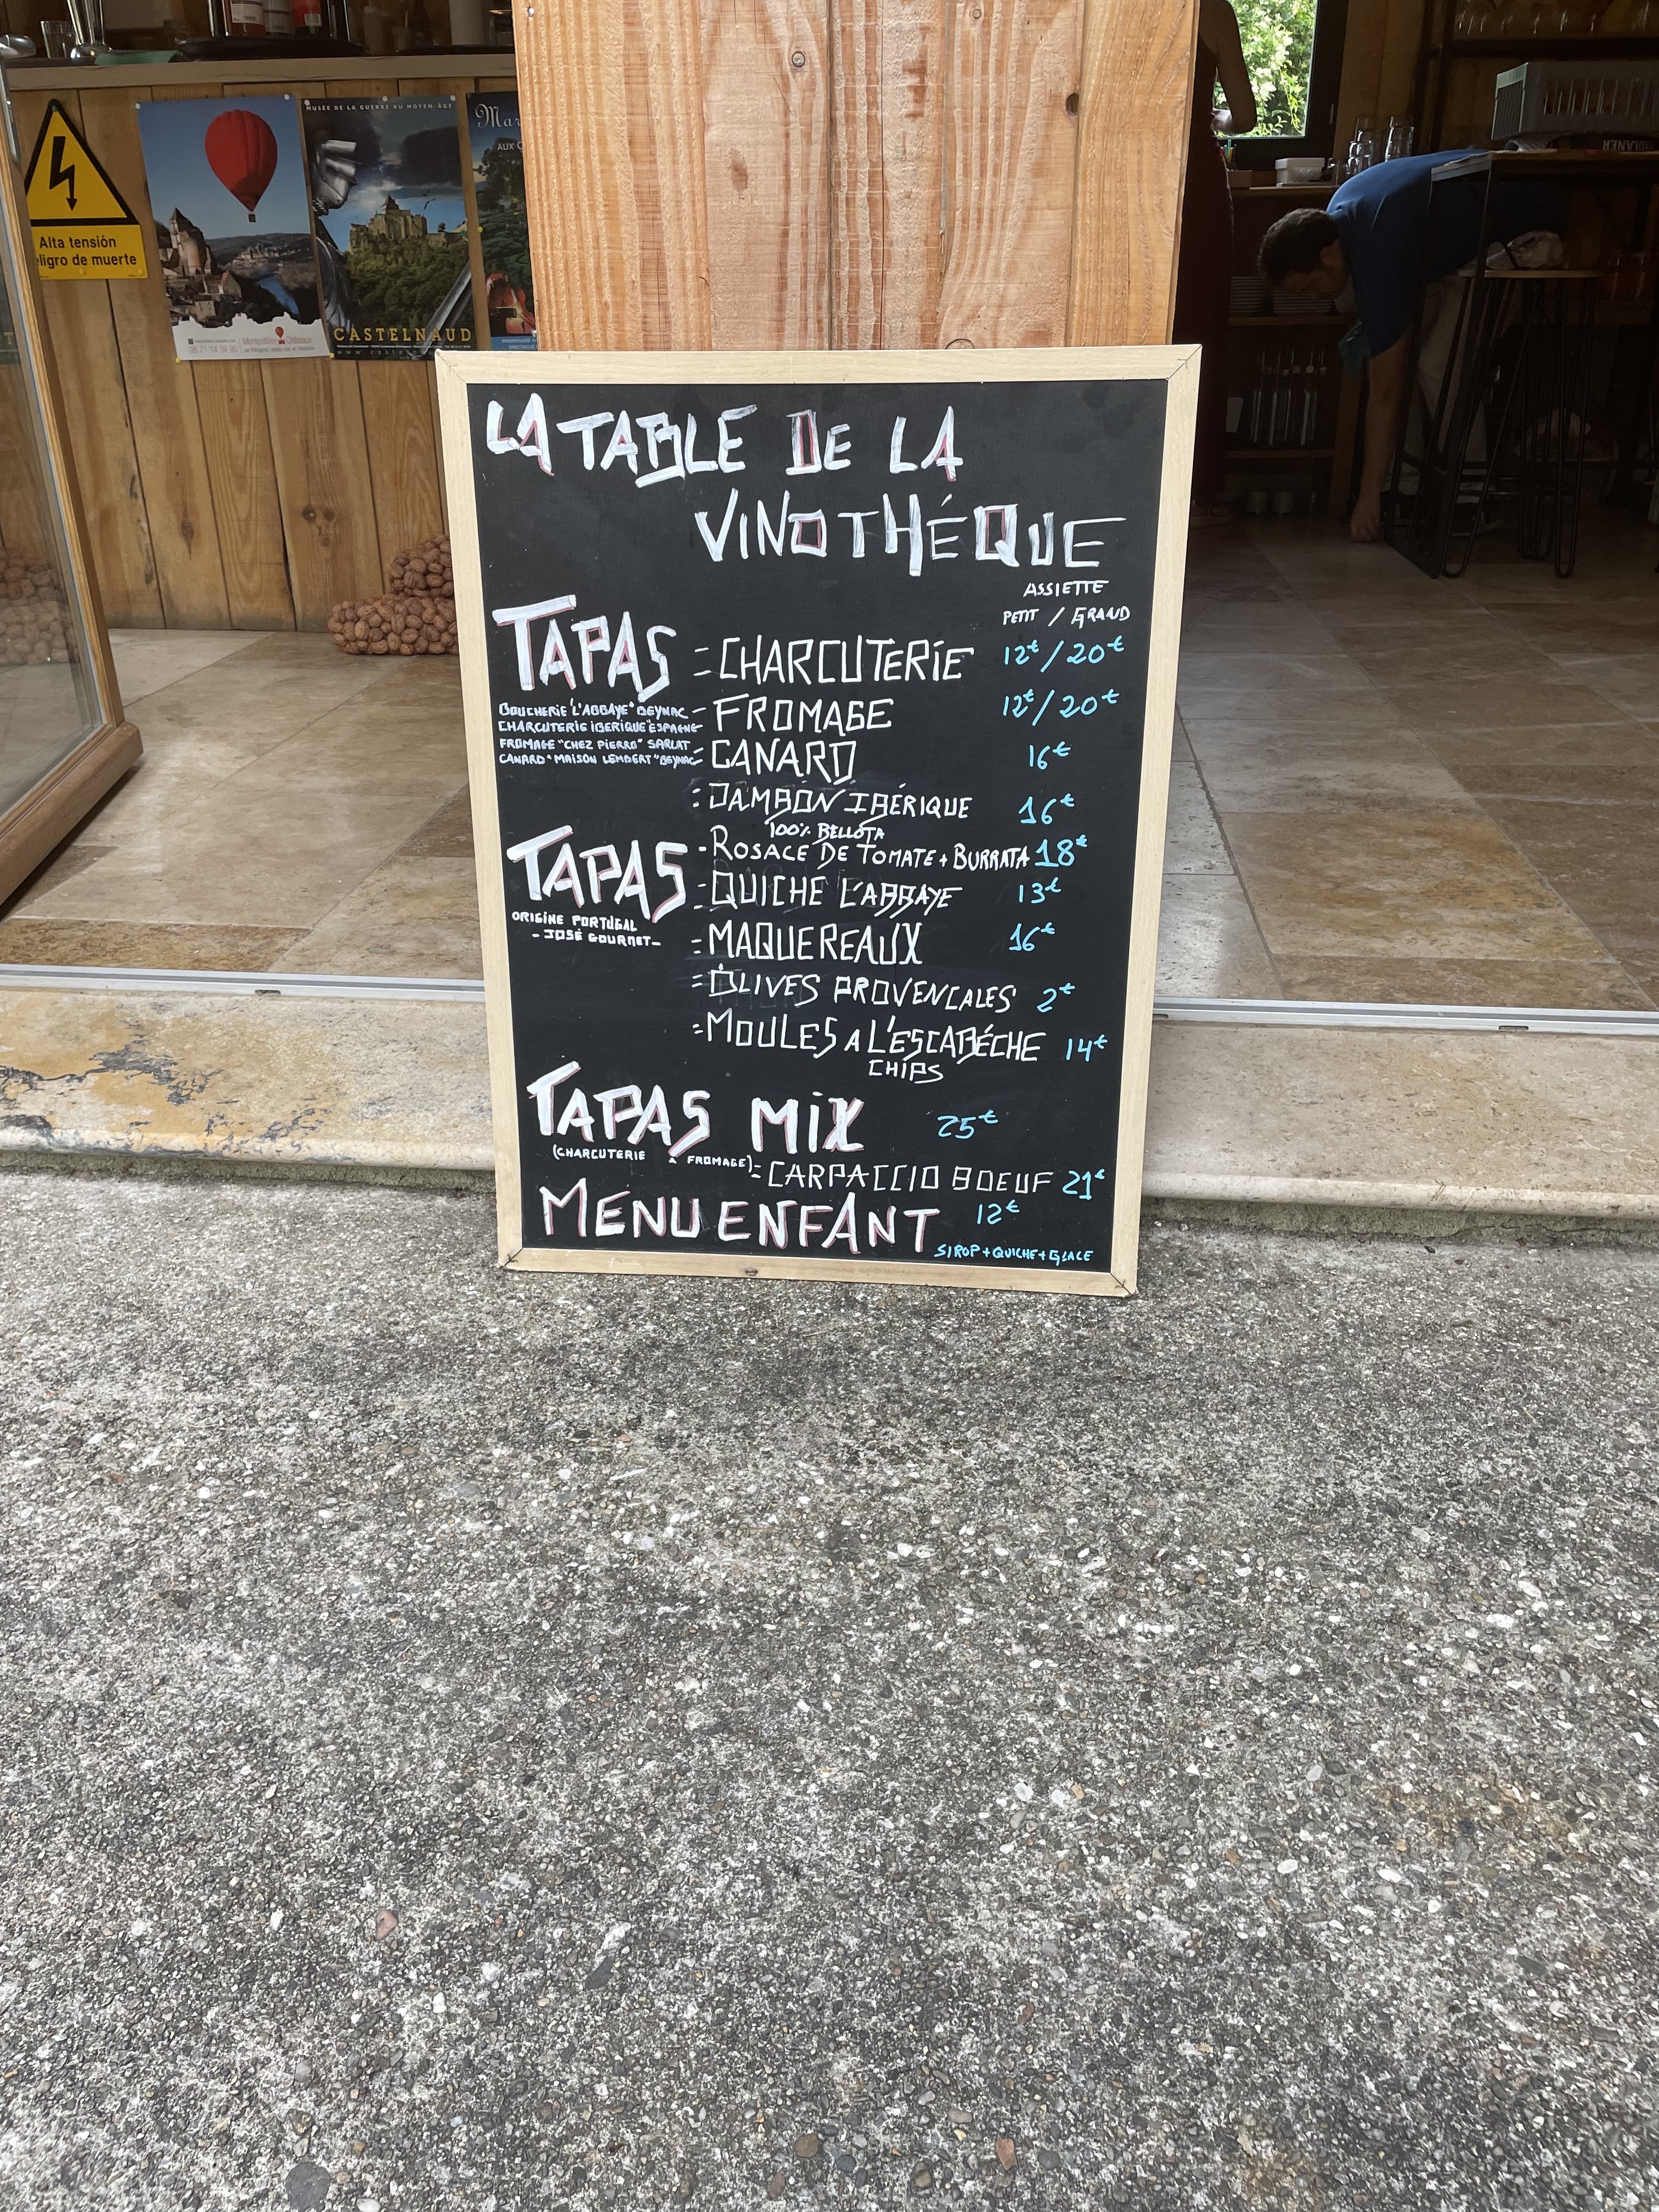 MUSÉE DE LA GUERRE AU MOYEN-ÂGE
Alta tensión
eligro de muerte
CASTELNAUD
LA TABLE DE LA
VINOTHÉQUE
ASSIETTE
PETIT / GRAND
TAPAS = CHARCUTERIE 12€/20€
BOUCHERIE "L'ABBAYE" BEYNAC - FROMAGE 12€/20€
CHARCUTERIE IBERIQUE "ESPAGNE
FROMAGE "CHEZ PIERRO" SARLAT
CANARD "MAISON LEMBERT" BEYNAC = CANARD 16€
= JAMBON IBÉRIQUE 16€
100% BELLOTA
TAPAS - ROSACE DE TOMATE + BURRATA 18€
- QUICHE L'ABBAYE 13€
ORIGINE PORTUGAL
- JOSÉ GOURMET -
= MAQUEREAUX 16€
= OLIVES PROVENCALES 2€
= MOULES A L'ESCABÉCHE 14€
CHIPS
TAPAS MIX 25€
(CHARCUTERIE & FROMAGE) = CARPACCIO BOEUF 21€
MENU ENFANT 12€
SIROP + QUICHE + GLACE